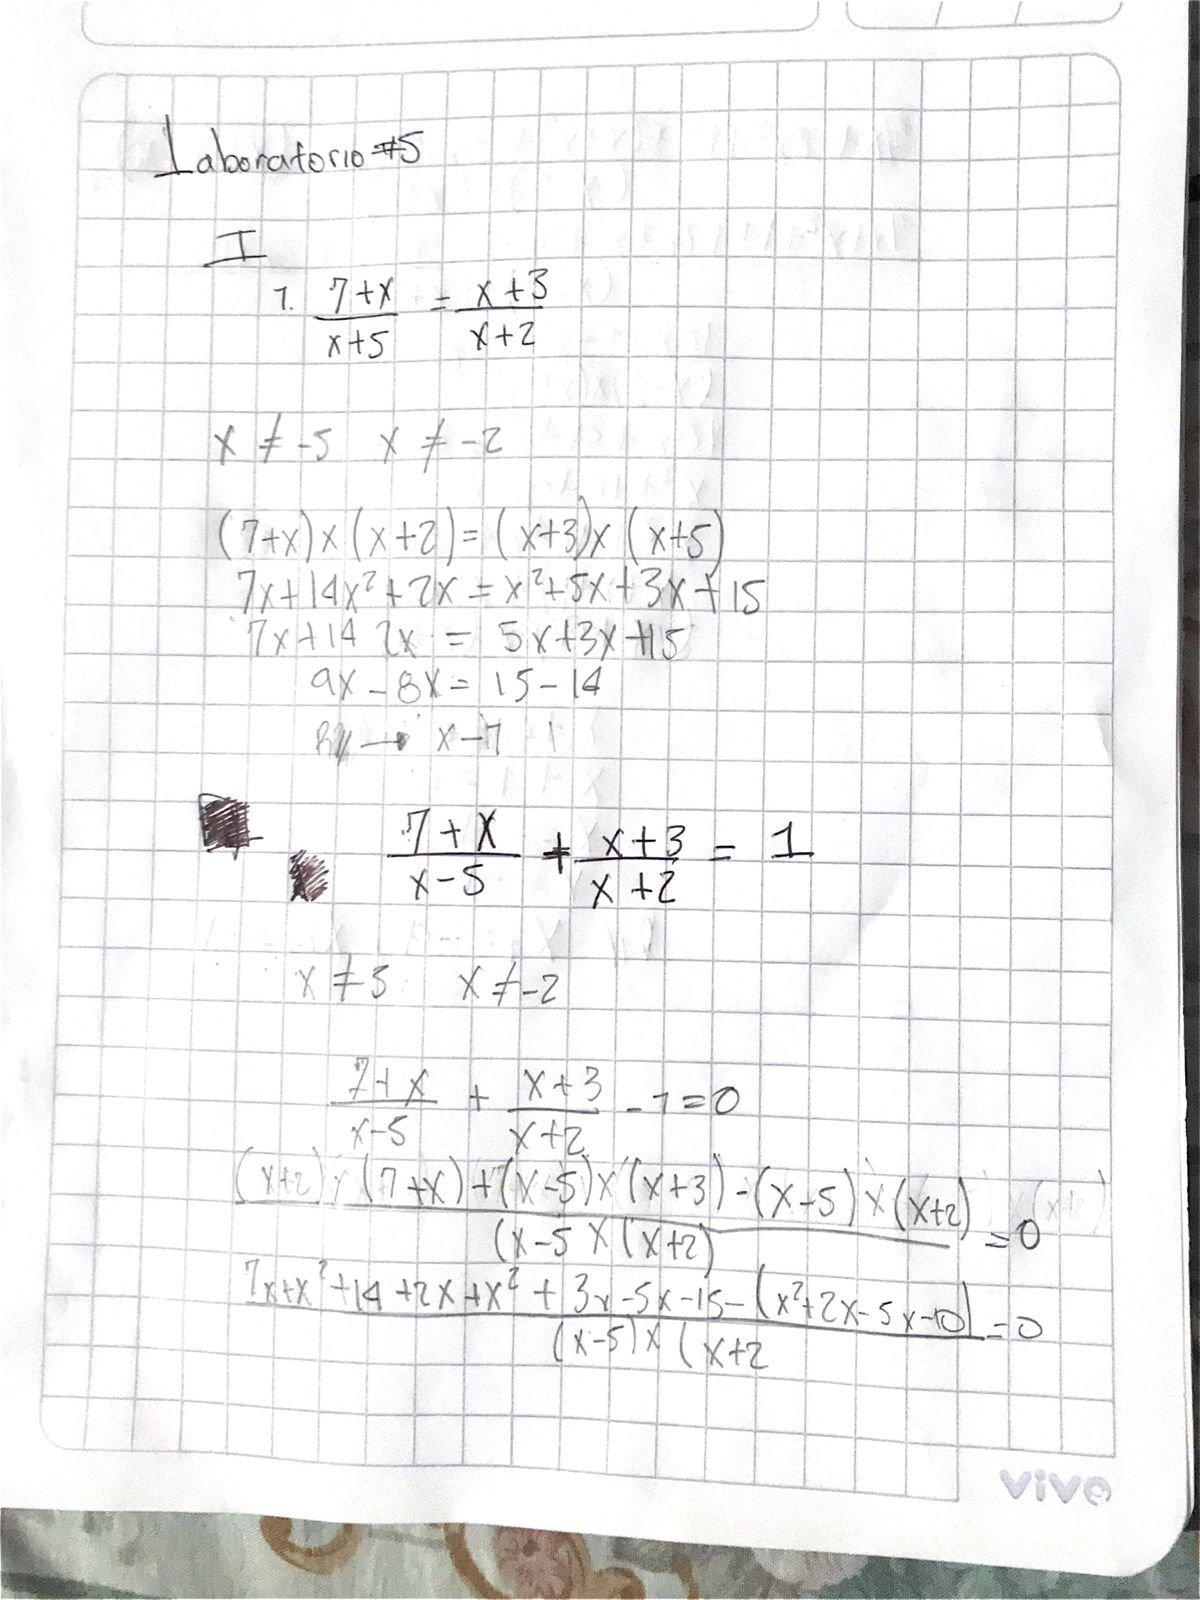 Laboratorio #5
I
1. 7+x / x+5 = x+3 / x+2
x ≠ -5 x ≠ -2
(7+x) x (x+2) = (x+3) x (x+5)
7x+14x²+2x = x²+5x+3x+15
7x+14 2x = 5x+3x+15
9x-8x = 15-14
x-7 1
7+x / x-5 + x+3 / x+2 = 1
x ≠ 5 x ≠ -2
7+x / x-5 + x+3 / x+2 - 1 = 0
(x+2) x (7+x) + (x-5) x (x+3) - (x-5) x (x+2) / (x-5 x (x+2) = 0
7x+x²+14+2x+x²+3x-5x-15-(x²+2x-5x-10) / (x-5) x (x+2 = 0
vivo